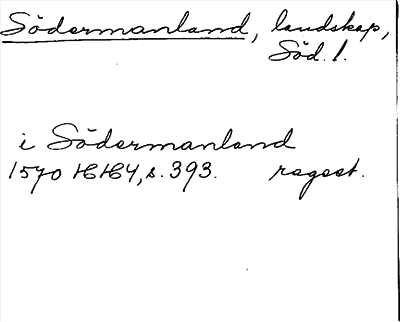 Södermanland, landskap,
Söd. l.
i Södermanland
1570 HH4, s. 393. regest.